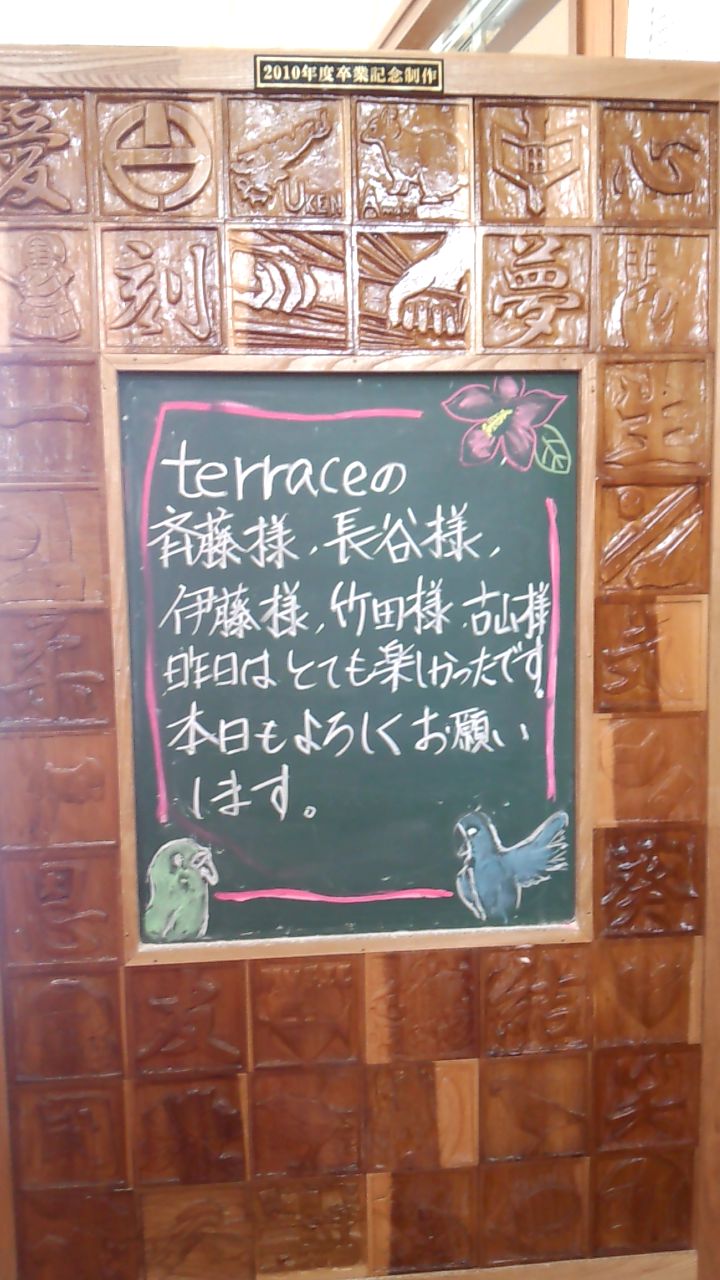 2010年度卒業記念制作
愛
UKEN
心
刻
夢
terraceの
斉藤様，長谷様，
伊藤様，竹田様，古山様
昨日はとても楽しかったです。
本日もよろしくお願い
します。
一
生
柔
思
友
結